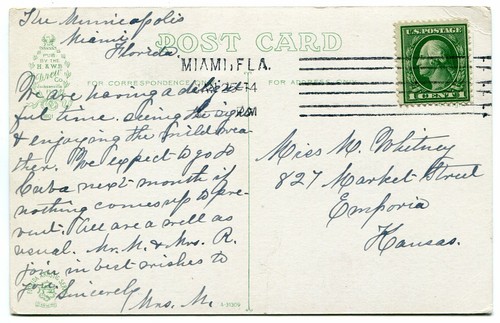 The Minneapolis
Miami
Florida
POST CARD
PUB
BY THE
H & W B
DREW
Co.
FOR CORRESPONDENCE
FOR ADDRESS
MIAMI, FLA.
U.S. POSTAGE
1 CENT 1
We are having a delight
ful time. Seeing the sights
& enjoying the mild wea-
ther. We expect to go to
Cuba next month if
nothing comes up to pre-
vent. All are well as
usual. Mr. M. & Mrs. R.
join in best wishes to
you. Sincerely
Mrs. M.
Miss M. Whitney
827 Market Street
Emporia
Kansas.